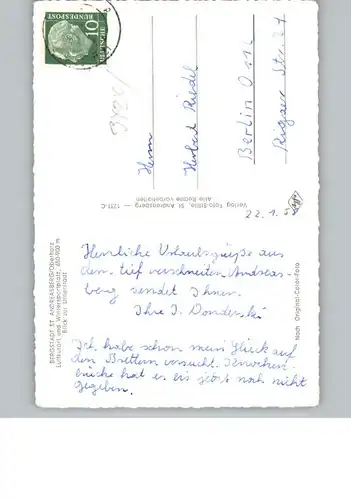 10
DEUTSCHE
BUNDESPOST
Herrn
Herbert Riedel
Berlin O 112
Rigaer Str. 27
Verlag Foto-Stille, St. Andreasberg – 1231-C
Alle Rechte vorbehalten
22.1.5
BERGSTADT ST. ANDREASBERG/Oberharz
Luftkurort und Wintersportplatz, 600-900 m
Blick zur Unterstadt
Nach Original-Color-Foto
Herrliche Urlaubsgrüße aus
dem tief verschneiten Andreas-
berg sendet Ihnen
Ihre I. Donderski
Ich habe schon mein Glück auf
den Brettern versucht. Knochen-
brüche hat es bis jetzt noch nicht
gegeben.